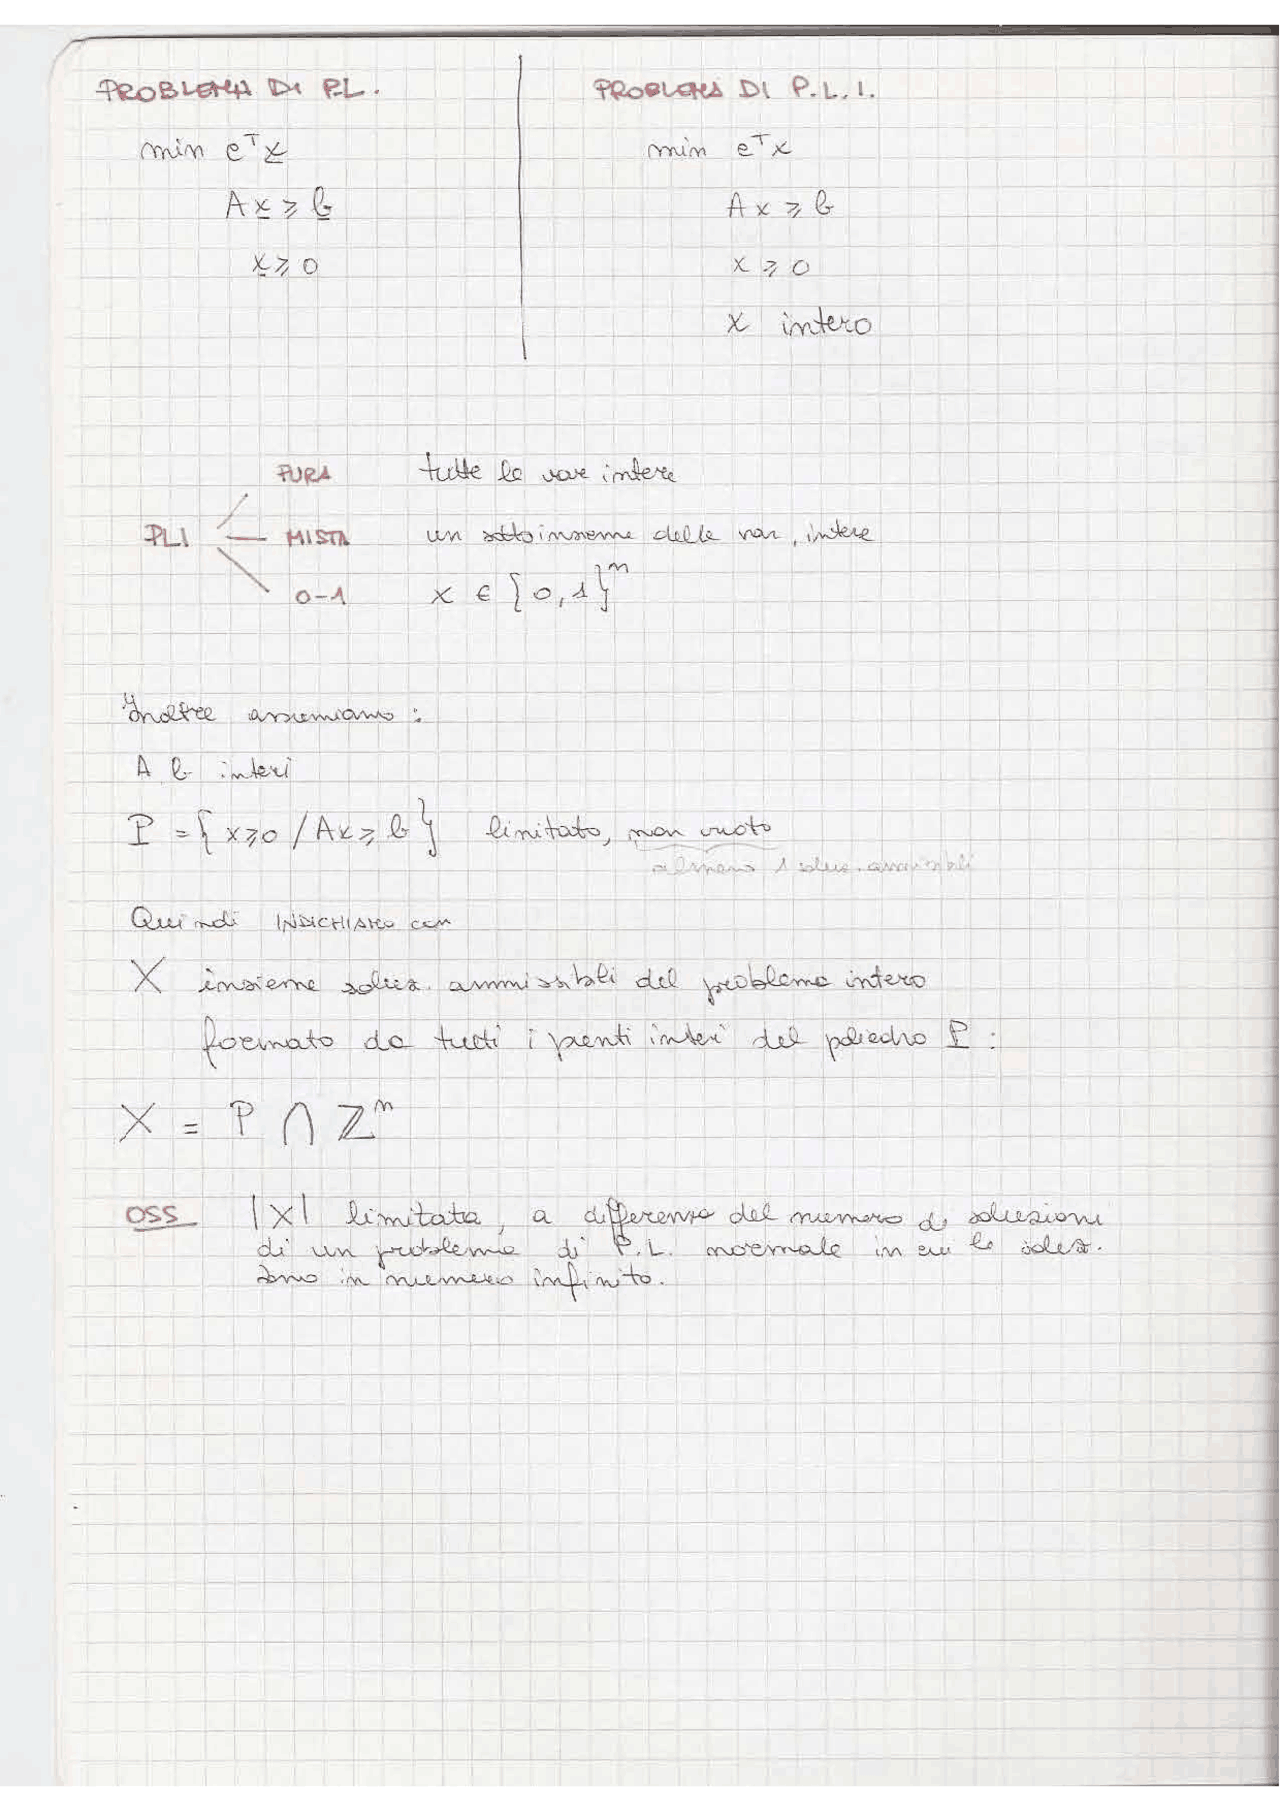 PROBLEMA DI P.L.
min cᵀx
Ax ≥ b
x ≥ 0
PROBLEMA DI P.L.I.
min cᵀx
Ax ≥ b
x ≥ 0
x intero
PURA tutte le var intere
PLI MISTA un sottoinsieme delle var, intere
0-1 x ∈ {0,1}ⁿ
Inoltre assumiamo :
A b interi
P = { x≥0 / Ax ≥ b } limitato, non vuoto
almeno 1 soluz. ammissibili
Quindi INDICHIAMO con
X insieme soluz. ammissibili del problema intero
formato da tutti i punti interi del poliedro P :
X = P ∩ ℤⁿ
OSS |X| limitata, a differenza del numero di soluzioni
di un problema di P.L. normale in cui le soluz.
sono in numero infinito.